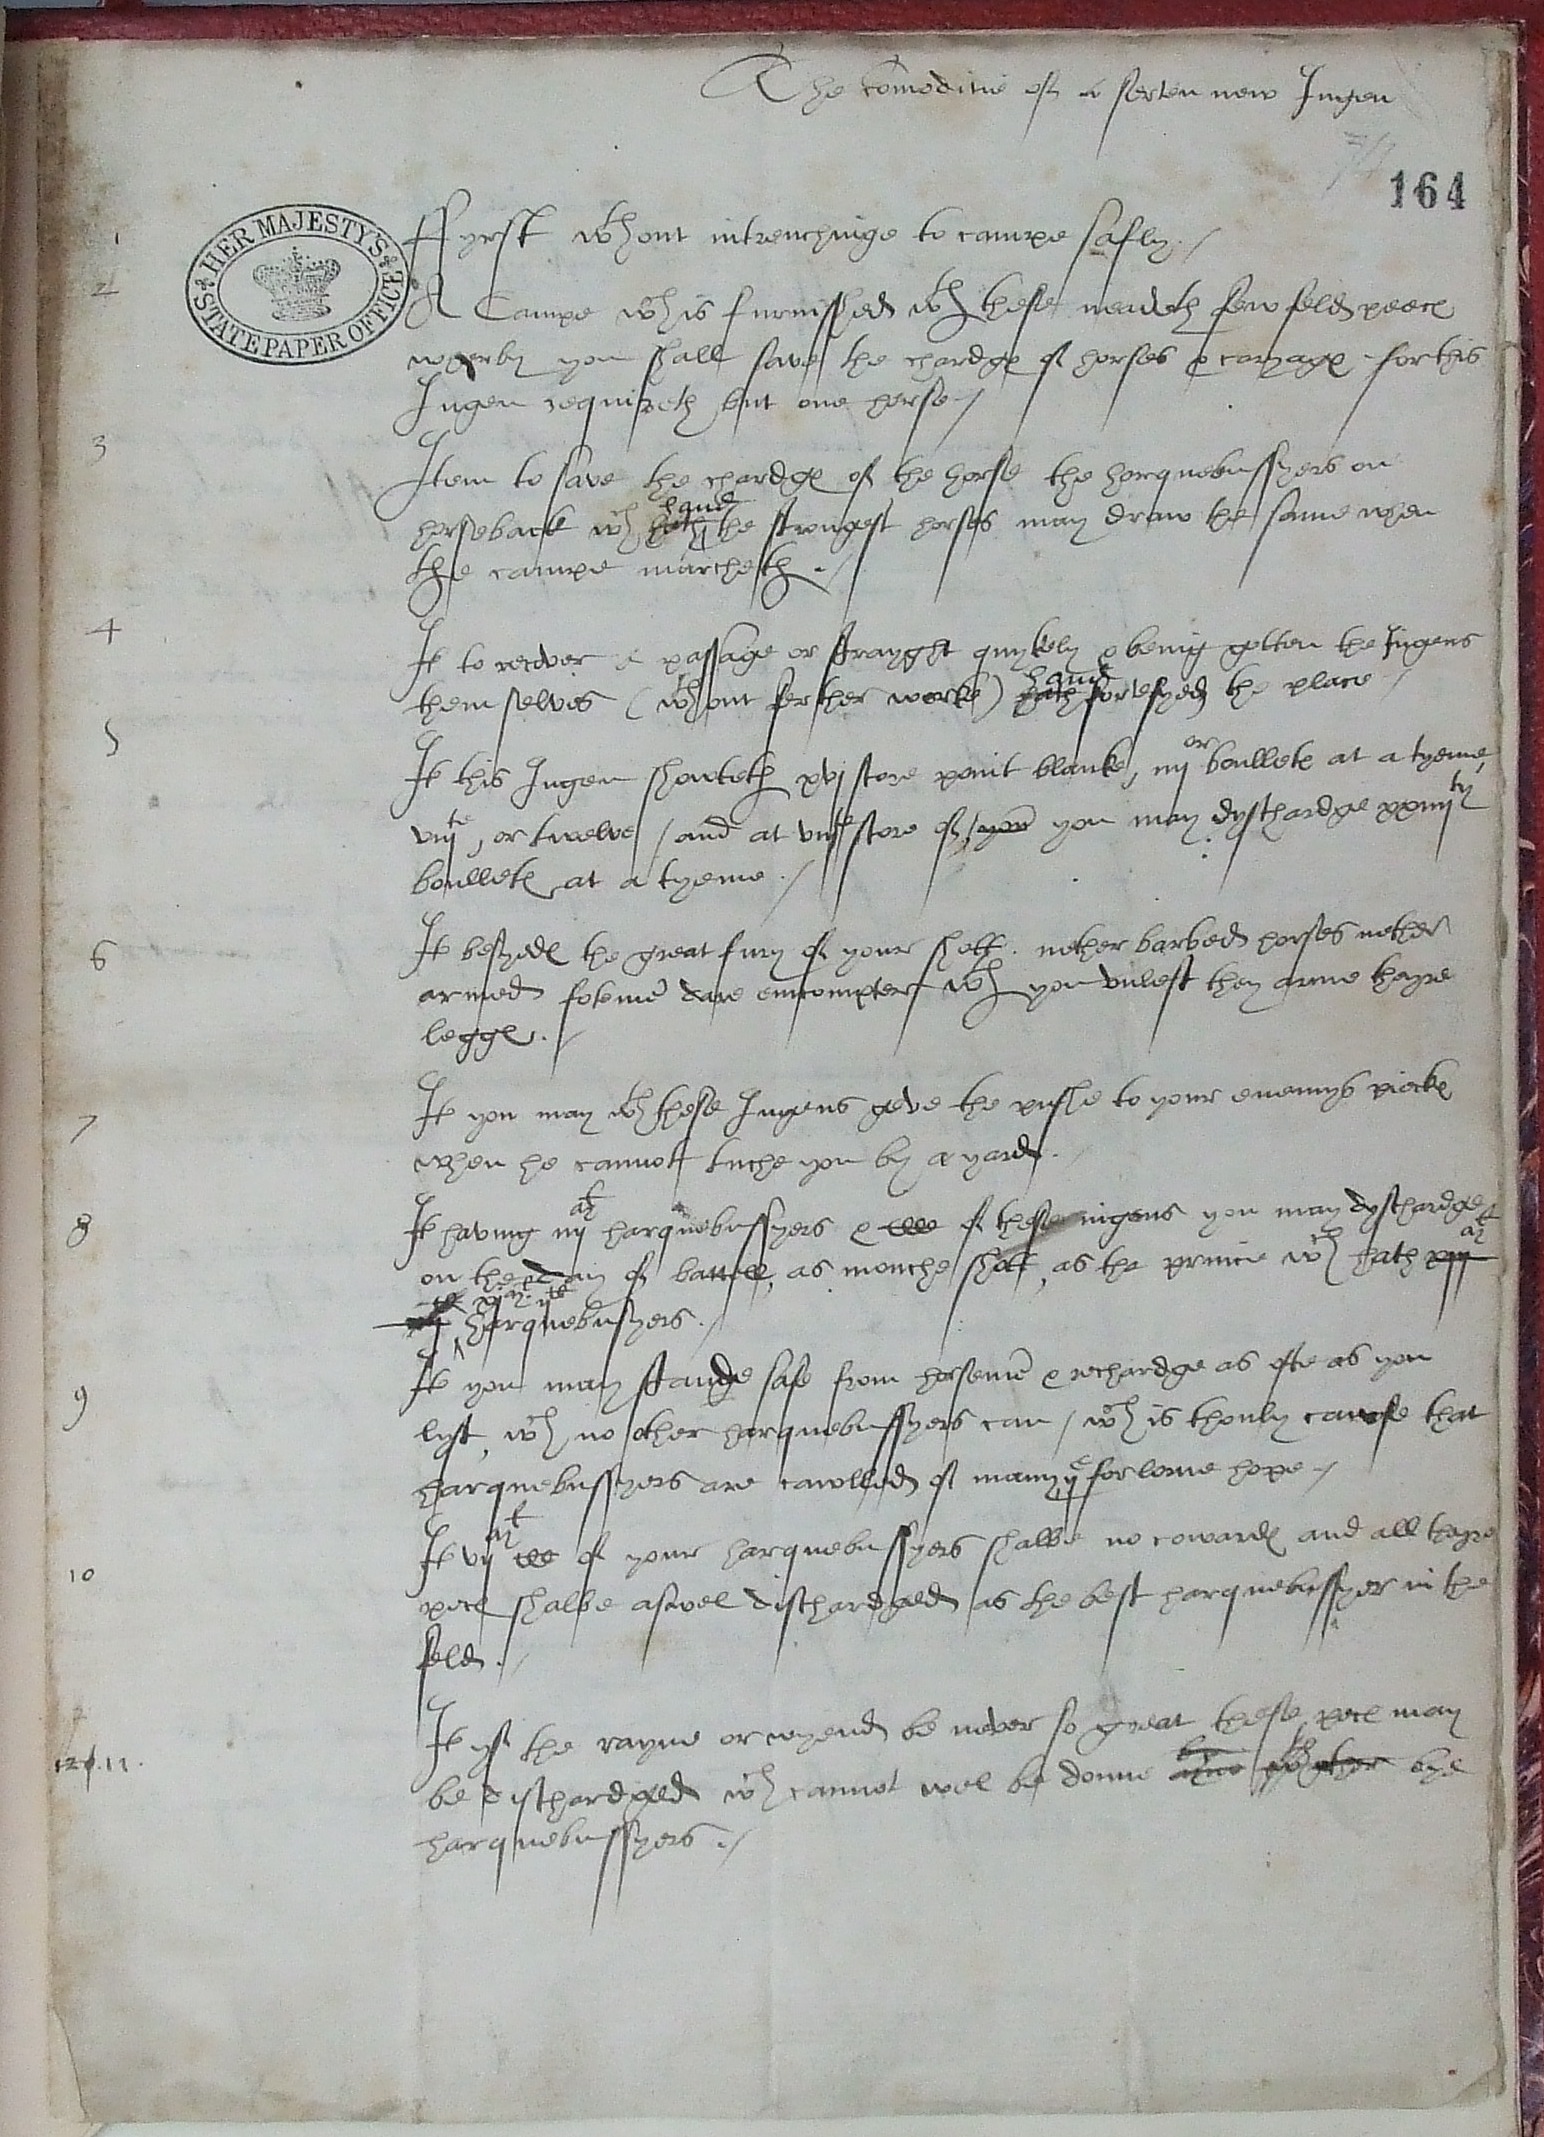 The comoditie of a serten new Ingen
164
HER MAJESTY'S STATE PAPER OFFICE
1 Ffyrst wthout intrenchinge to campe safly./
2 A Campe wch is furnisshed wth these neadeth few feld peecs
wherby you shall save the chardge of horses & caryage for this
Ingen requireth but one horse /
3 Item to save the chardge of the horse the harquebussyers on
horseback wch hath haue the strongest horses may draw the same when
the campe marcheth ./
4 It to recover a passage or strayght quykely & being gotten the Ingens
themselves (wthout ferther worke) hath haue fortefyed the place /
5 It this Ingen shouteth xvj skore point blanke, iiij or boulletes at a tyeme,
viijte, or twelve / and at viijte skore of, you may dyschardge xxiiijty
boulletes at a tyeme ./
6 It besyedes the great fury of your shott. nether barbed horses nether
armed fotemē dare encompter wth you vnlest they arme theyre
legges. /
7 It you may wth these Ingens geve the pushe to your enemys pickes
when he cannott tuche you by a yarde. /
8 It having iiij harquebussyers & of these ingens you may dyschardge
on the day of battell, as mouche shott, as the prince wch hath
harquebusyers. /
9 It you may stande safe from horsemē & rechardge as ofte as you
lyst, wch no other harquebussyers can / wch is thonly cause that
harquebussyers are cawlled of many ye forlorne hope /
10 It vij of your harquebussyers shalbe no cowardes and all theyre
peces shalbe aswel dischardged as the best harquebussyer in the
feld. /
12 11. It yf the rayne or wyend be never so great these peces may
be dischardged wch cannot wel be donne bye
harquebussyers ./